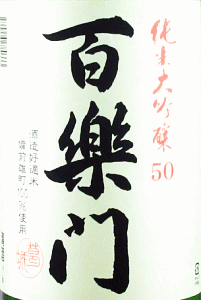 純米大吟醸
50
百樂門
酒造好適米
備前雄町100%使用